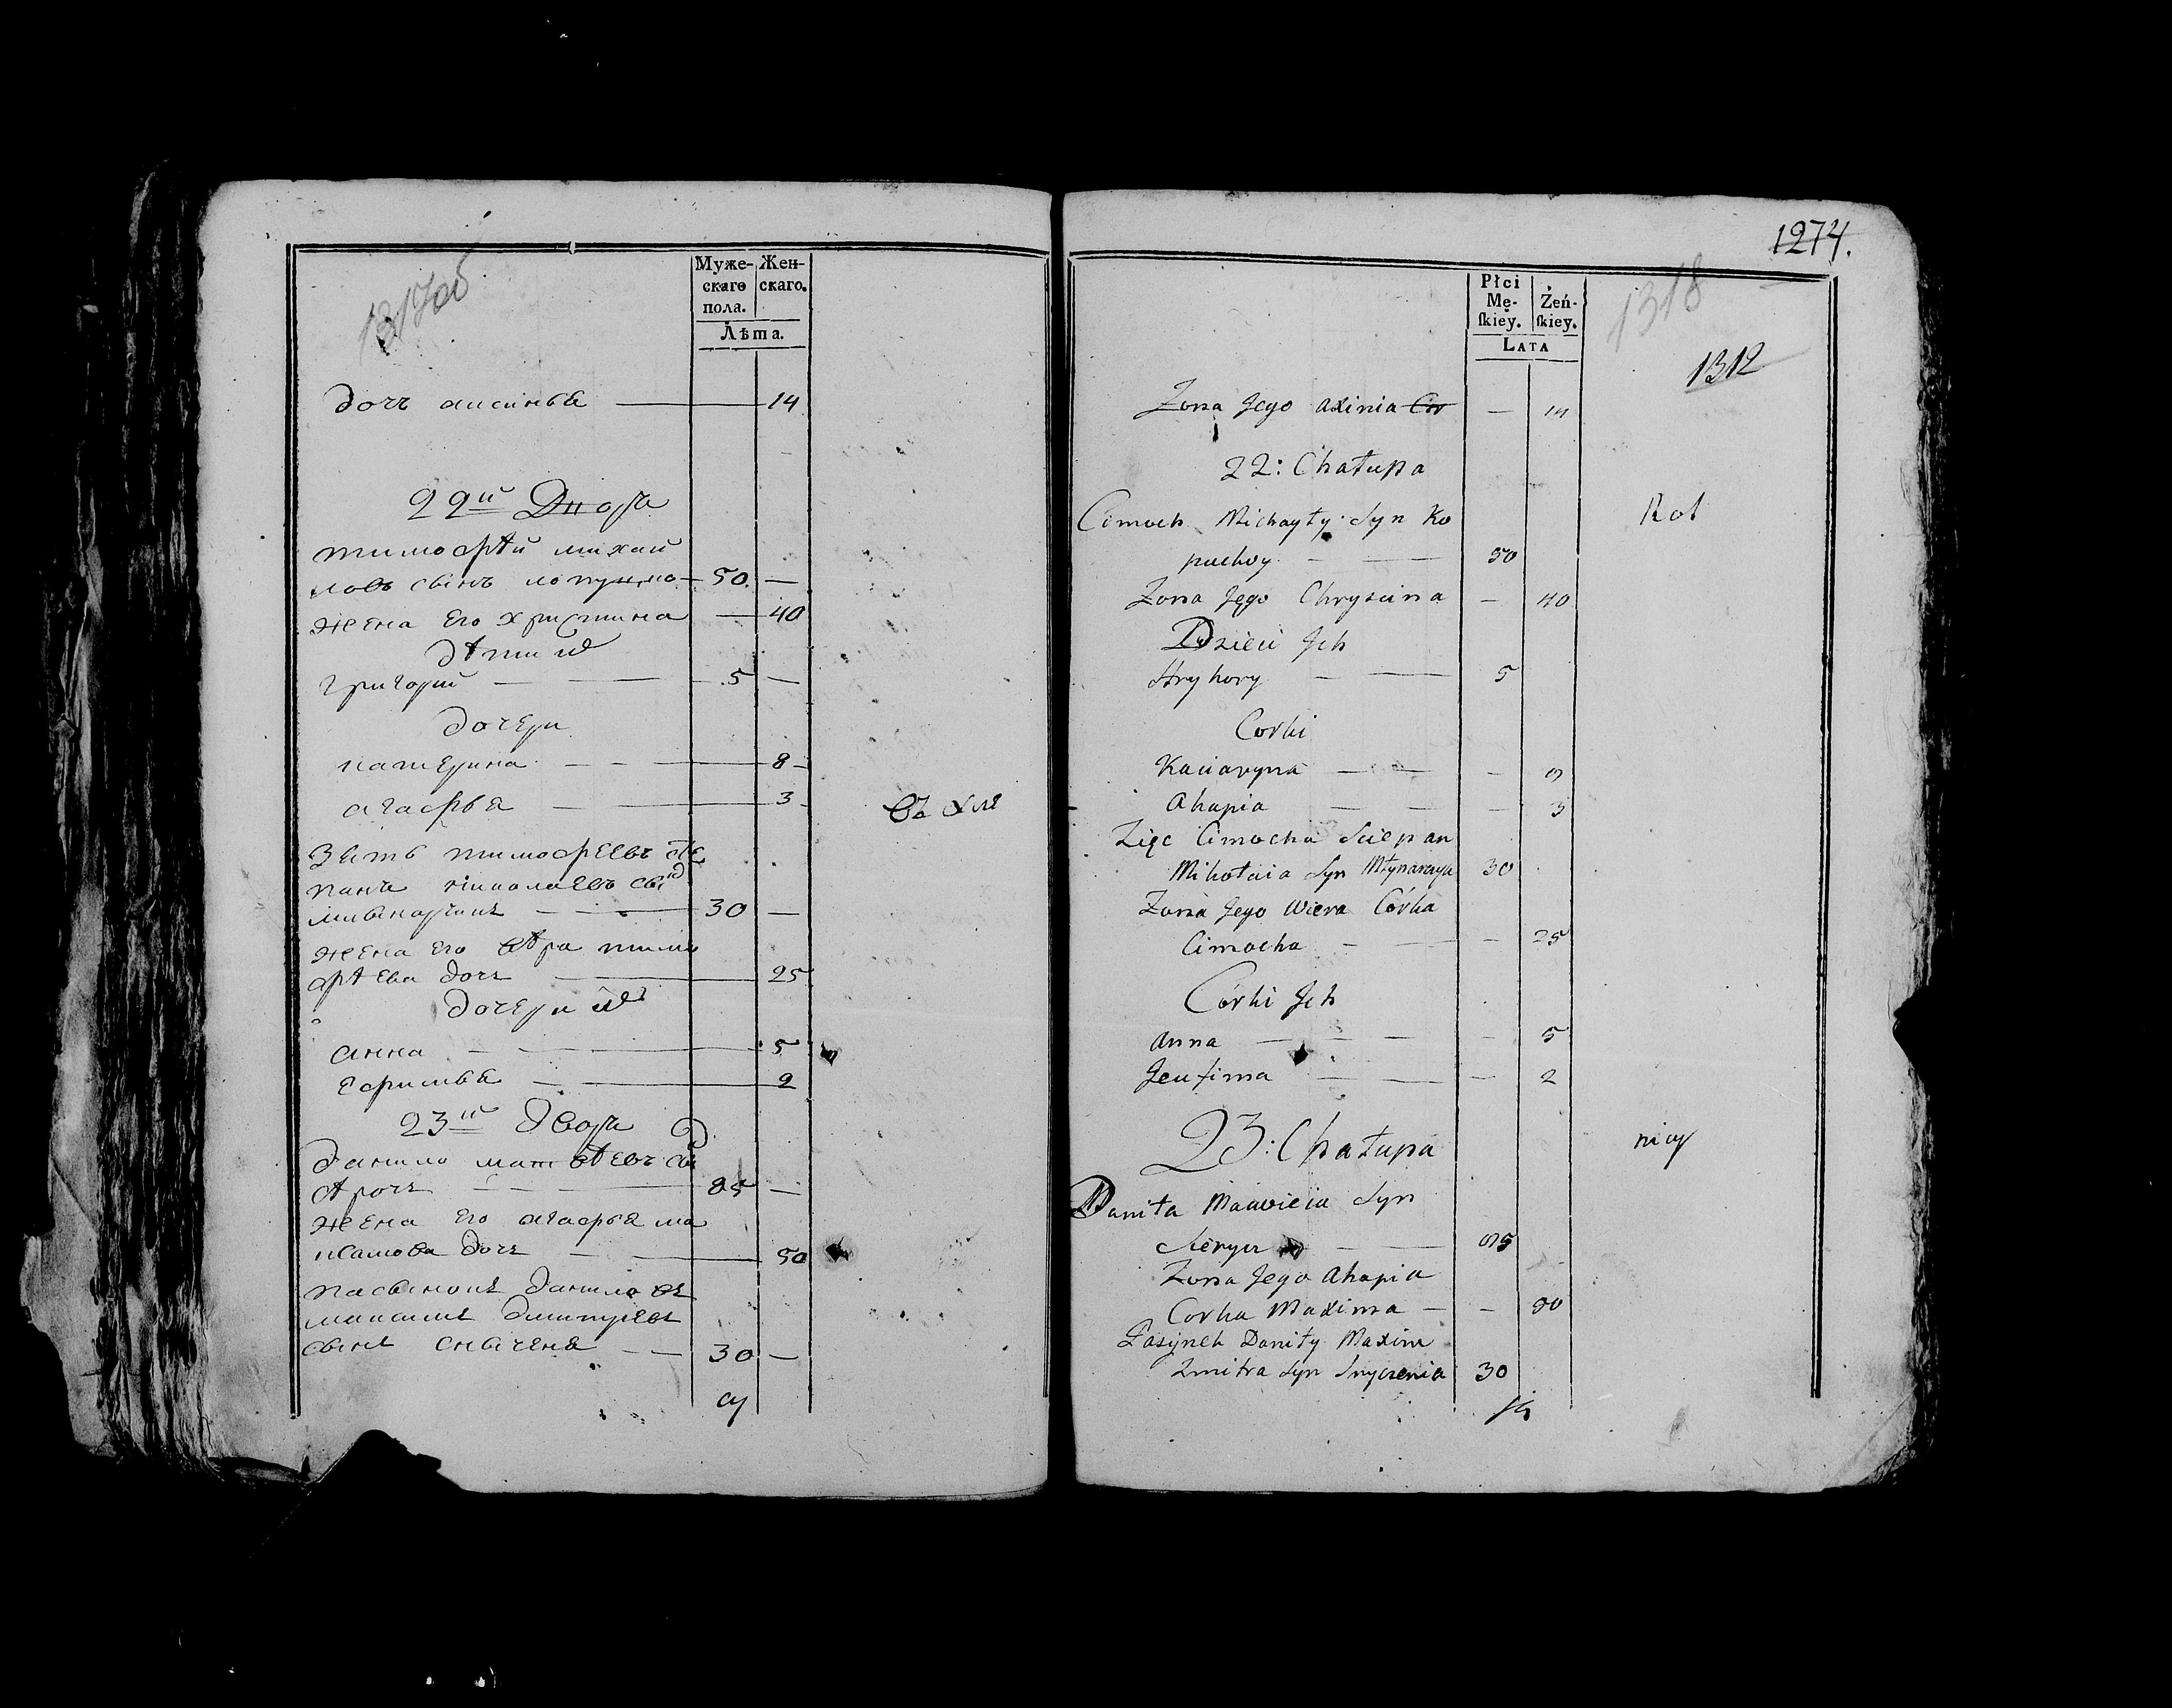 1317об
Муже-
скаго
пола.
Жен-
скаго.
Лѣта.
дочъ аксинья 14
22й Двора
тимофѣй михай
ловъ сынъ копухо 50 —
жена его христина — 40
дѣти их
григорий — — 5 —
дочери
катерина — — 8 —
агафья — — 3
Зять тимофеевъ сте
панъ николаевъ сын
мльнарчик — — 30 —
жена его вѣра тимо
фѣева доч — 25
дочери их
анна — — 5
ефимья — — 2
23й двора
данило матвѣевъ сын
— — 85 —
жена его агафья ма
ксимова доч — — 50
пасынок данилов
максим дмитриев
сын сныченя — — 30 —
1274.
1318
1312
Płci
Mę-
skiey.
Żeń-
skiey.
LATA
Zona Jego axinia Cor — 14
22: Chałupa
Cimoch Michayły Syn Ko
puchoy — — 50
Zona Jego Chryscina — 40
Dzieci Jch
Hryhory — — 5
Corki
Kaciaryna — — — 8
Ahapia — — — 3
Zięc Cimocha Sciepan
Mikołaia Syn Młynarczyk 30
Zona Jego Wiera Córka
Cimocha — — — 25
Córki Jch
anna — — — 5
Jeufima — — — 2
23: Chałupa
Daniła Maćwieia Syn
— — 85
Zona Jego Ahapia
Corka Maxima — — 50
Pasynek Daniły Maxim
Zmitra Syn Snyczenia 30